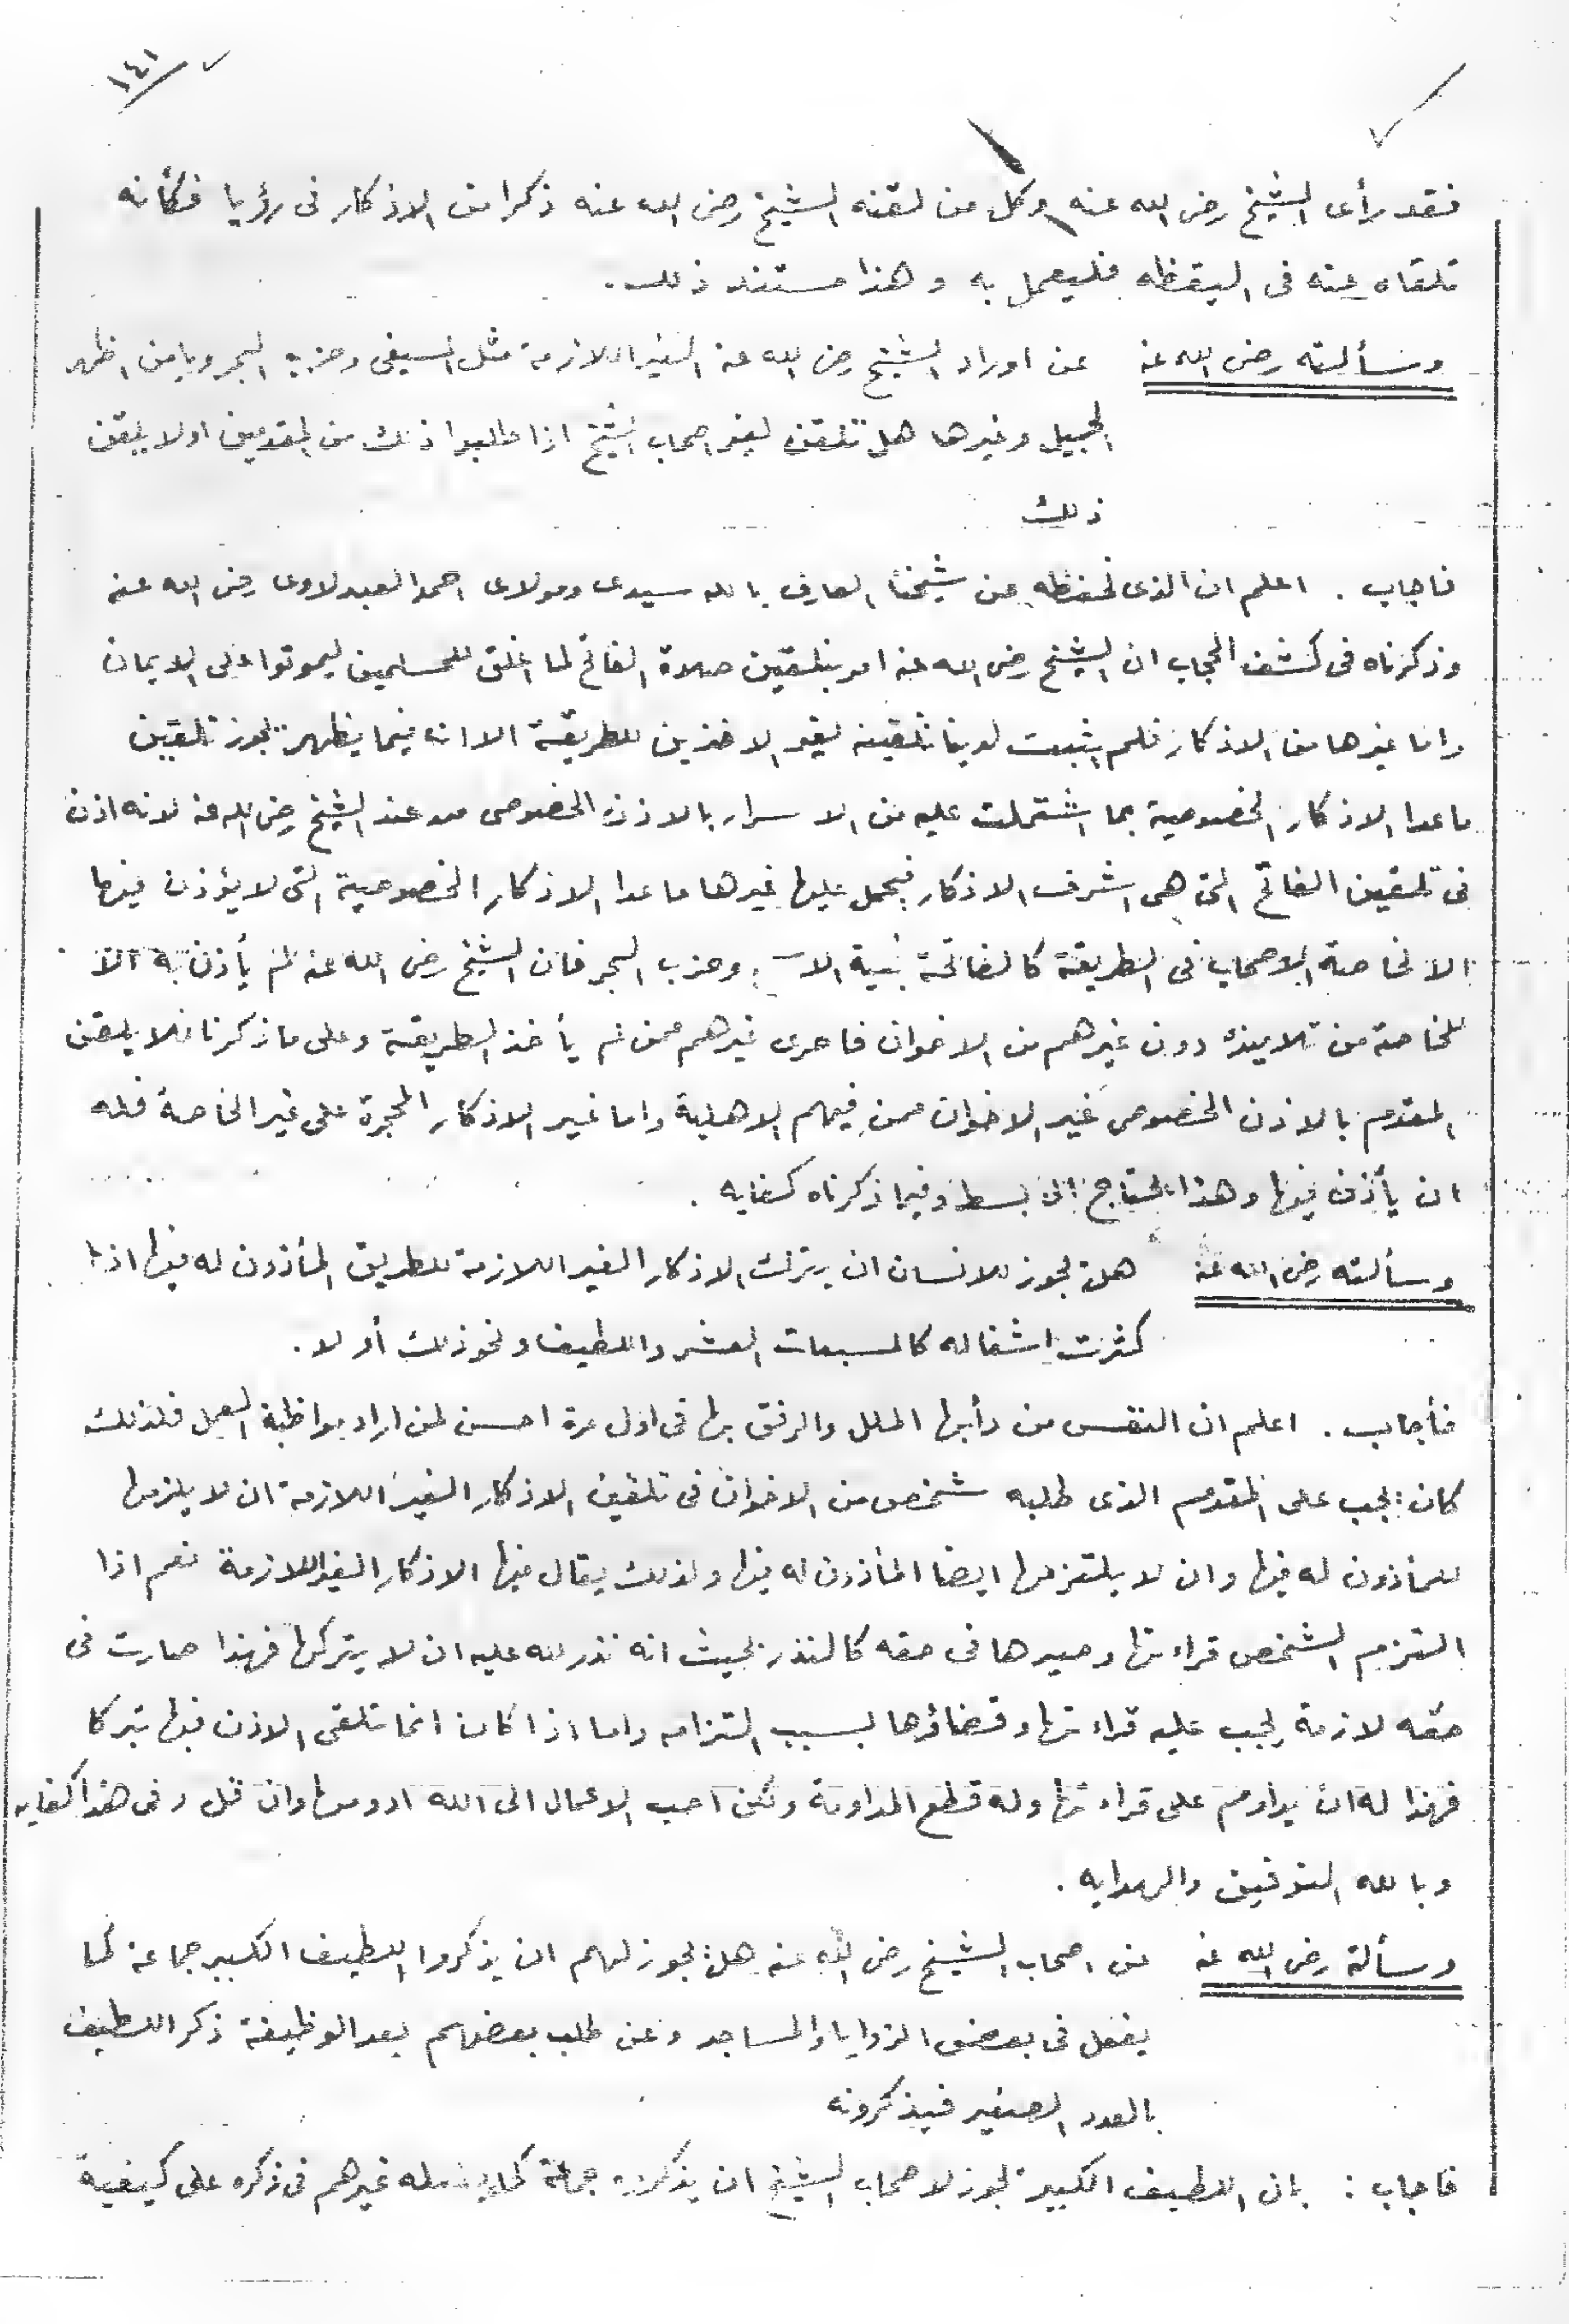 ١٤١
فقد رأى الشيخ رضى الله عنه وكل من لقنه الشيخ رضى الله عنه ذكرا من الاذكار فى رؤيا فكأنه
تلقاه عنه فى اليقظه فليعمل به وهذا مستند ذلك.
وسألته رضى الله عنه عن اوراد الشيخ رضى الله عنه الغير اللازمة مثل السيفى وحزب البحر ويا من اظهر
الجميل وغيرها هل تلقن لغير اصحاب الشيخ اذا طلبوا ذلك من المقدمين اولا يلقن
ذلك
فاجاب . اعلم ان الذى نحفظه عن شيخنا العارف بالله سيدى ومولاى احمد العبدلاوى رضى الله عنه
وذكرناه فى كشف الحجاب ان الشيخ رضى الله عنه امر بتلقين صلاة الفاتح لما اغلق للمسلمين ليموتوا على الايمان
واما غيرها من الاذكار فلم يثبت لدينا تلقينه لغير الاخذين للطريقة الا ان فيما يظهر يجوز تلقين
ما عدا الاذكار الخصوصية بما اشتملت عليه من الاسرار بالاذن الخصوصى من عند الشيخ رضى الله عنه لانه اذن
فى تلقين الفاتح التى هى اشرف الاذكار فيحمل عليها غيرها ما عدا الاذكار الخصوصية التى لا يؤذن فيها
الا لخاصة الاصحاب فى الطريقة كالفاتحة بنية الا وحزب البحر فان الشيخ رضى الله عنه لم يأذن به الا
للخاصة من تلاميذه دون غيرهم من الاخوان فاحرى غيرهم ممن لم يأخذ الطريقة وعلى ما ذكرنا فلا يلقن
المقدم بالاذن الخصوصى غير الاخوان ممن فيهم الاهلية واما غير الاذكار المحجرة على غير الخاصة فله
ان يأذن فيها وهذا يحتاج الى بسط وفيما ذكرناه كفايه .
وسألته رضى الله عنه هل يجوز للانسان ان يترك الاذكار الغير اللازمة للطريق المأذون له فيها اذا
كثرت اشغاله كالمسبعات العشر واللطيف ونحو ذلك أولا .
فأجاب . اعلم ان النفس من دأبها الملل والرفق بها فى اول مرة احسن لمن اراد مواظبة العمل فلذلك
كان يجب على المقدم الذى طلبه شخص من الاخوان فى تلقين الاذكار الغير اللازمة ان لا يلزمها
للمأذون له فيها وان لا يلتزمها ايضا المأذون له فيها ولذلك يقال فيها الاذكار الغير اللازمة نعم اذا
التزم الشخص قراءتها وصيرها فى حقه كالنذر بحيث انه نذر لله عليه ان لا يتركها فهذا صارت فى
حقه لازمة يجب عليه قراءتها وقضاؤها بسبب التزامه واما اذا كان انما تلقى الاذن فيها تبركا
فهذا له ان يداوم على قراءتها وله قطع المداومة ولكن احب الاعمال الى الله ادومها وان قل وفى هذا كفايه
وبالله التوفيق والهدايه .
وسألة رضى الله عنه عن اصحاب الشيخ رضى الله عنه هل يجوز لهم ان يذكروا اللطيف الكبير جماعة كما
يفعل فى بعض الزوايا والمساجد وعن طلب بعضهم بعد الوظيفة ذكر اللطيف
بالعدد الصغير فيذكرونه
فاجاب : بان اللطيف الكبير يجوز لاصحاب الشيخ ان يذكروه جملة كما يفعله غيرهم فى ذكره على كيفية